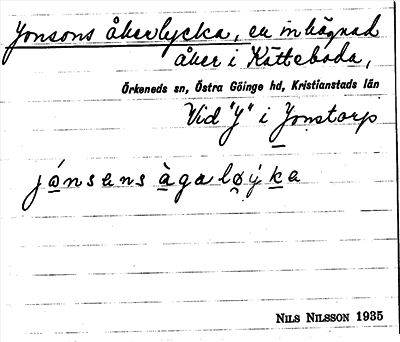 Jonsons åkerlycka, en inhägnad
åker i Kätteboda,
Örkeneds sn, Östra Göinge hd, Kristianstads län
Vid "J" i Jonstorp
jónsɑns àgalọÿka
NILS NILSSON 1935